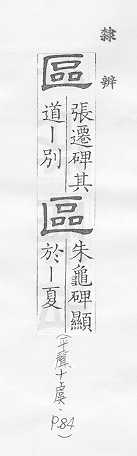 隸辨
區
張遷碑其
道丨別
區
朱龜碑顯
於丨夏
(平聲十虞·P.84)